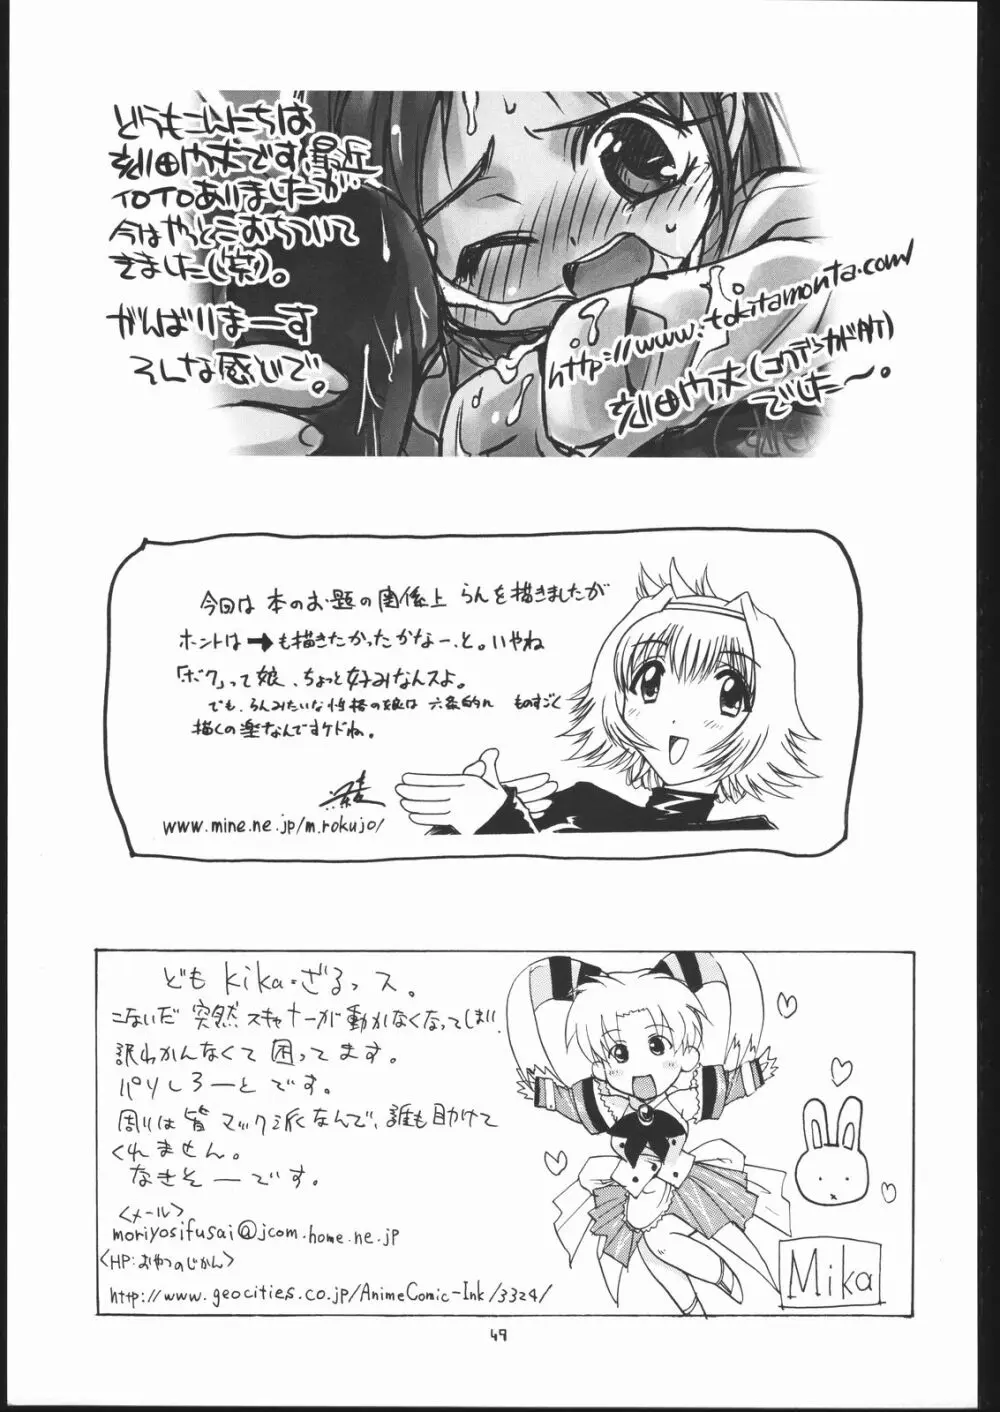 どうもこんにちは
刻田門大です最近
イロイロありましたが
今はやっとこおちついて
きました(笑)。
がんばりまーす
そんな感じで。
http://www.tokitamonta.com/
刻田門大(コクデンカドタケ)
でしたー〜。
今回は 本のお題の関係上 らんを描きましたが
ホントは➡も描きたかったかなー、と。いやね
「ボク」って娘、ちょっと好みなんスよ。
でも、らんみたいな性格の娘は 六条的に ものすごく
描くの楽なんですケドね。
www.mine.ne.jp/m.rokujo/
ども kika=ざるっス。
こないだ 突然 スキャナーが動かなくなってしまい、
訳わかんなくて 困ってます。
パソしろーとです。
周りは皆 マック派なんで、誰も助けて
くれません。
なきそーです。
<メール>
moriyosifusai@jcom.home.ne.jp
<HP:おやつのじかん>
http://www.geocities.co.jp/AnimeComic-Ink/3324/
Mika
49